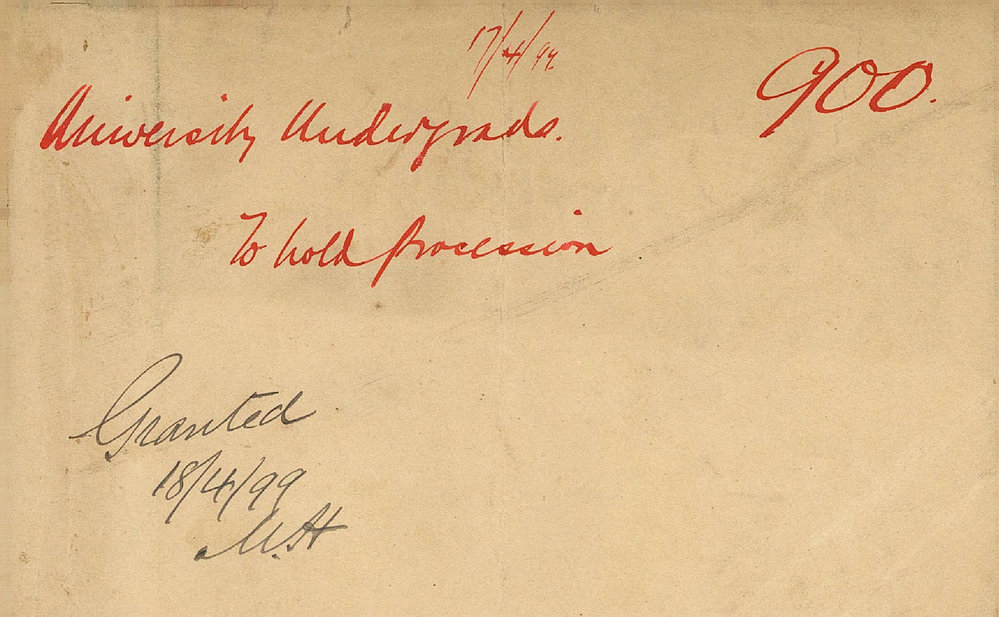 17/4/99
900.
University Undergrads.
To hold Procession
Granted
18/4/99
M.H